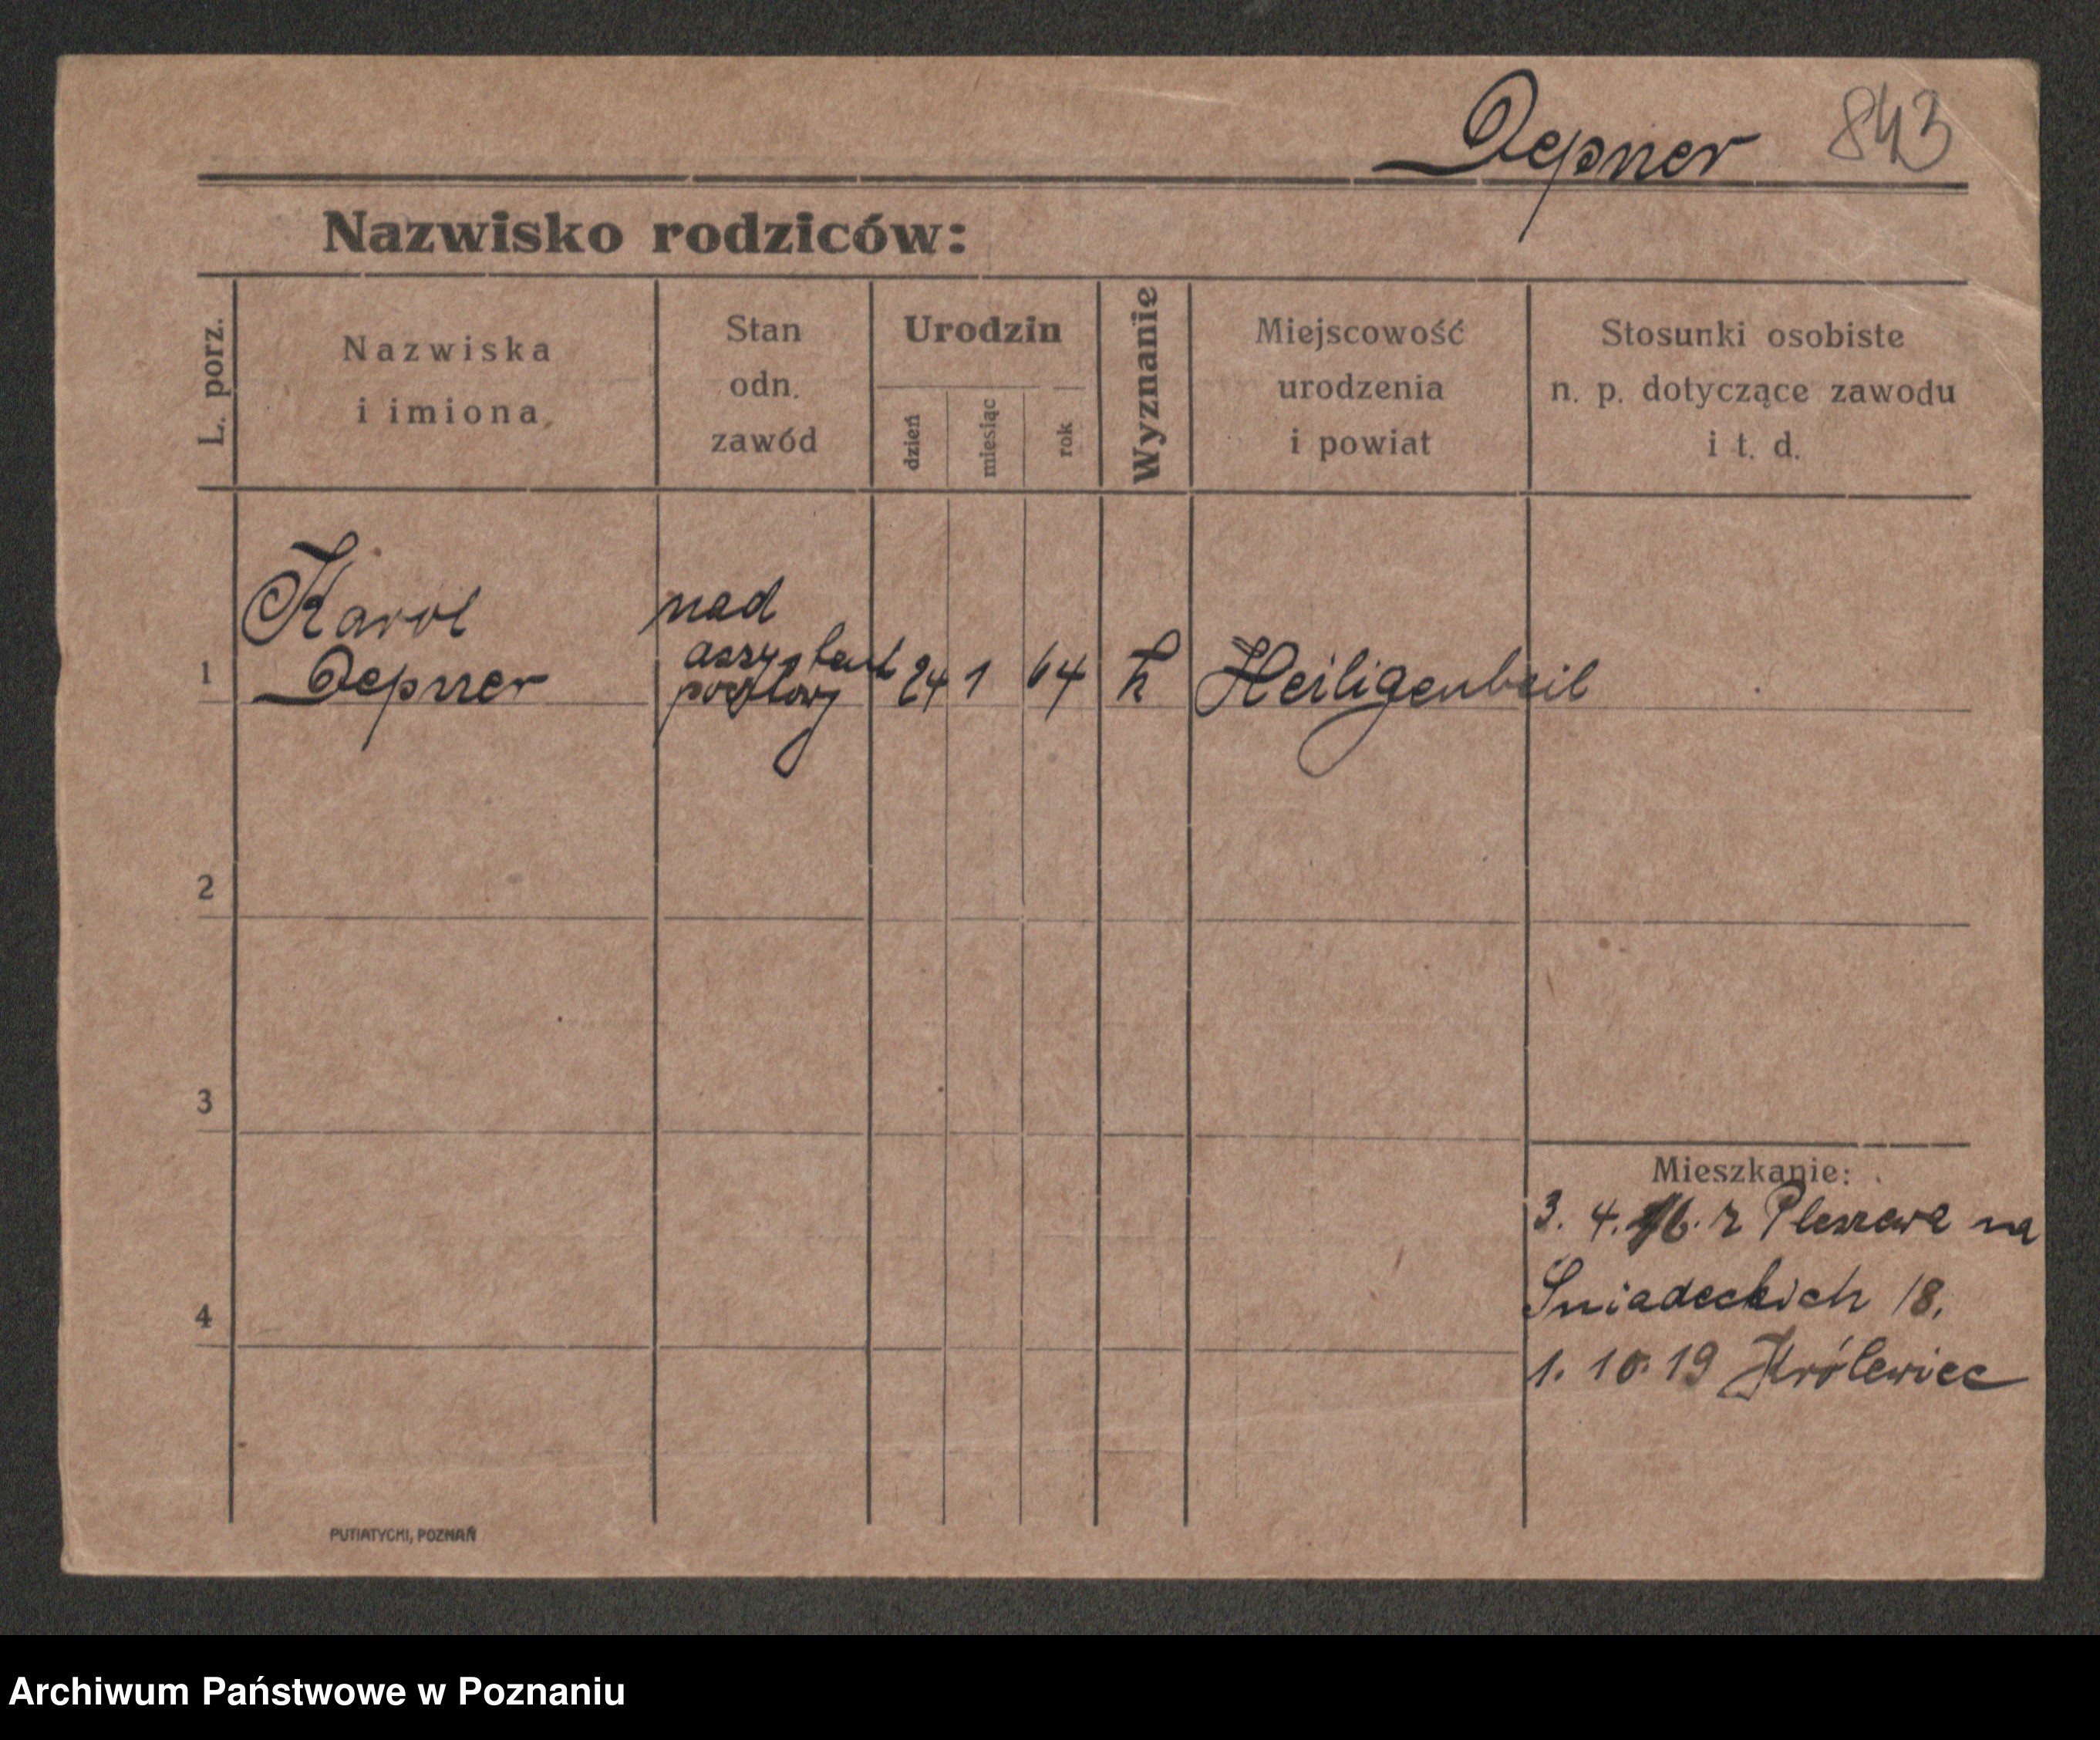 Depner 843
Nazwisko rodziców:
L. porz.
Nazwiska
i imiona
Stan
odn.
zawód
Urodzin
dzień
miesiąc
rok
Wyznanie
Miejscowość
urodzenia
i powiat
Stosunki osobiste
n. p. dotyczące zawodu
i t. d.
Karol
Depner
nad
aszystent
pocztowy
1
24 1 64 k Heiligenbeil
2
3
4
Mieszkanie:
3. 4. 16. z Pleszewa na
Śniadeckich 18.
1. 10. 19 Królewiec
PUTIATYCKI, POZNAŃ
Archiwum Państwowe w Poznaniu